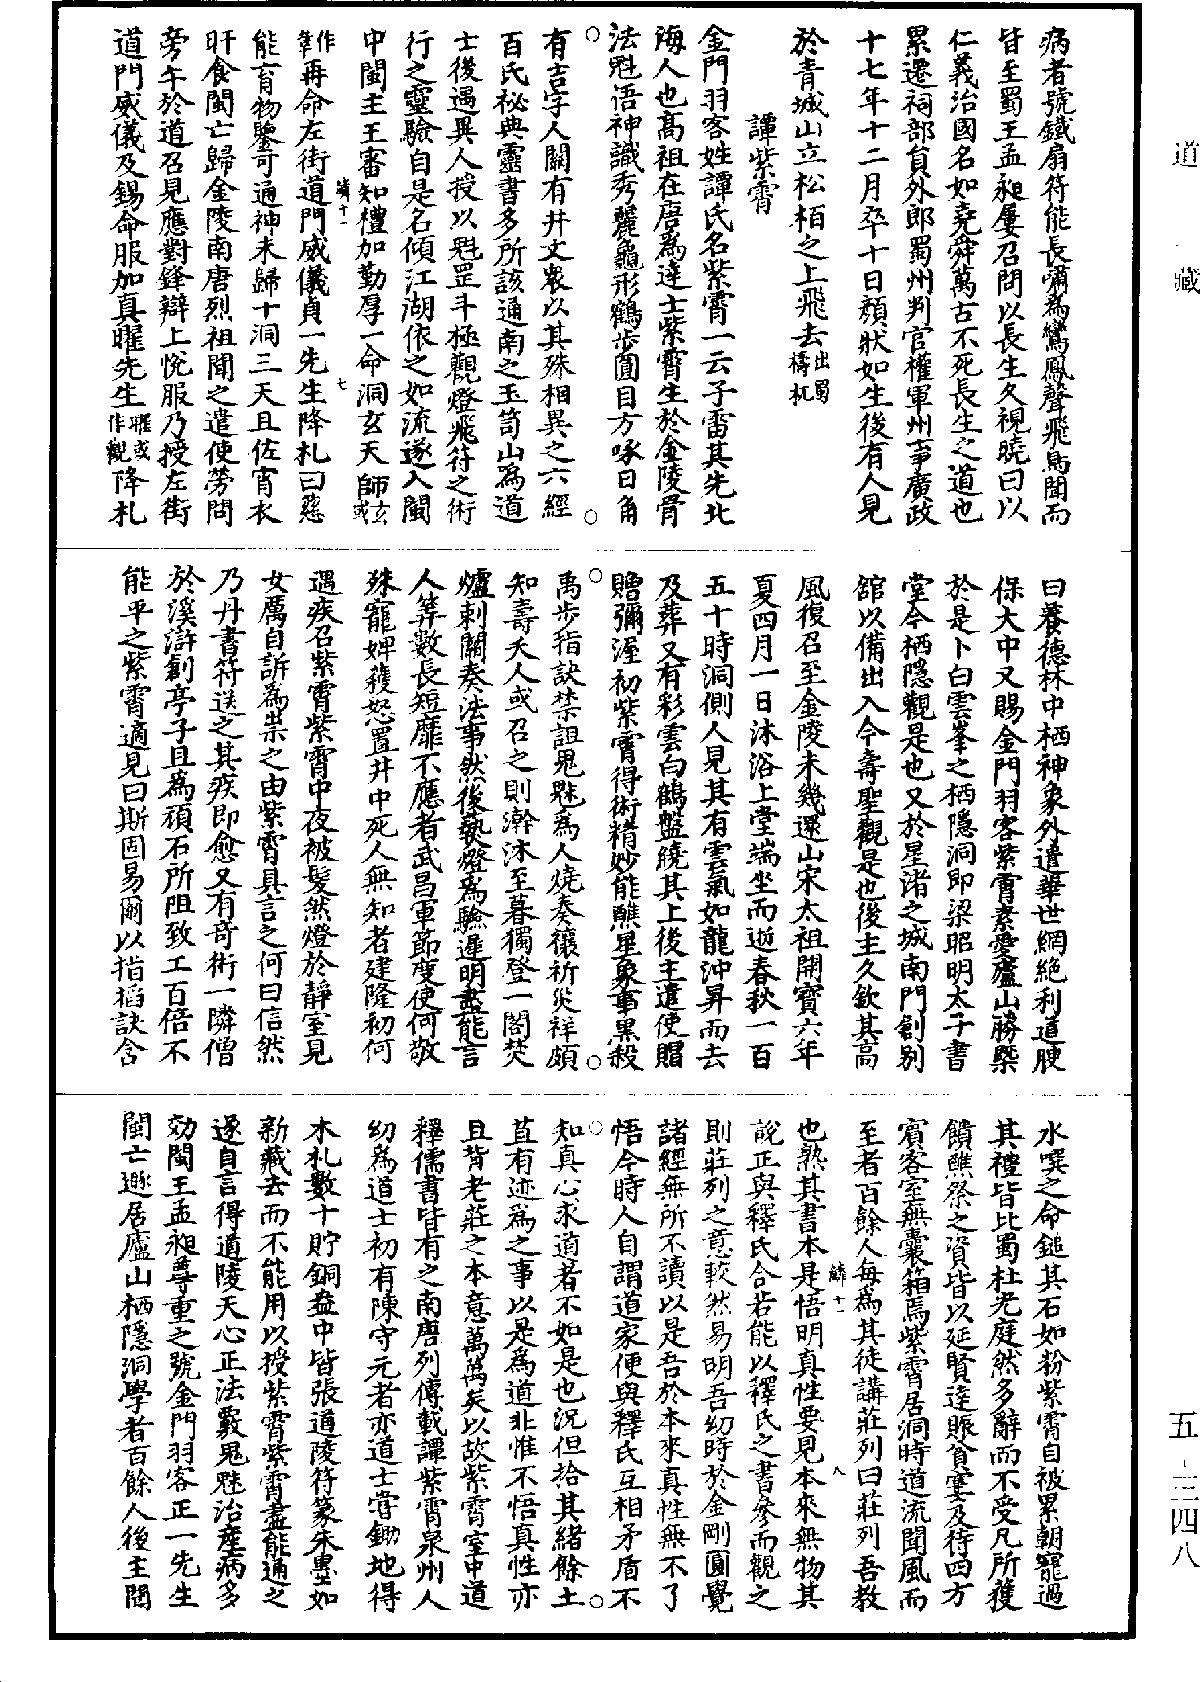 道藏
病者號鐵扇符能長嘯爲鸞鳳聲飛鳥聞而
皆至蜀王孟昶屢召問以長生久視曉曰以
仁義治國名如堯舜萬古不死長生之道也
累遷祠部員外郎蜀州判官權軍州事廣政
十七年十二月卒十日顏狀如生後有人見
於青城山立松栢之上飛去出蜀檮杌
譚紫霄
金門羽客姓譚氏名紫霄一云子雷其先北
海人也高祖在唐爲達士紫霄生於金陵骨
法䰢悟神識秀麗龜形鶴步圓目方啄日角
有吉字人關有井文衆以其殊相異之六經
百氏祕典靈書多所該通南之玉笥山爲道
士後遇異人授以䰢罡斗極觀燈飛符之術
行之靈驗自是名傾江湖依之如流遂入閩
中閩主王審知禮加勤厚一命洞玄天師玄或
作筆再命左街道門威儀貞一先生降札曰慈
能育物鑒可通神未歸十洞三天且佐宵衣
旰食閩亡歸金陵南唐烈祖聞之遣使勞問
旁午於道召見應對鋒辯上悅服乃授左街
道門威儀及錫命服加真曜先生曜或作觀降札
曰養德林中栖神象外遣華世網絕利道腴
保大中又賜金門羽客紫霄素愛廬山勝槩
於是卜白雲峯之栖隱洞即梁昭明太子書
堂今栖隱觀是也又於星渚之城南門創别
館以備出入今壽聖觀是也後主久欽其高
風復召至金陵未幾還山宋太祖開寶六年
夏四月一日沐浴上堂端坐而逝春秋一百
五十時洞側人見其有雲氣如龍沖昇而去
及葬又有彩雲白鶴盤繞其上後主遣使賵
贈彌渥初紫霄得術精妙能醮星象事黑殺
禹步指訣禁詛鬼魅爲人燒奏禳祈災祥頗
知壽夭人或召之則澣沐至暮獨登一閣焚
爐刺關奏法事然後爇燈爲驗遲明盡能言
人筭數長短靡不應者武昌軍節度使何敬
殊寵婢𧄍怒置井中死人無知者建隆初何
遇疾召紫霄紫霄中夜被髮然燈於靜室見
女厲自訴爲祟之由紫霄具言之何曰信然
乃丹書符送之其疾即愈又有奇術一隣僧
於溪滸創亭子且爲頑石所阻致工百倍不
能平之紫霄適見曰斯固易爾以指搯訣含
水噀之命鎚其石如粉紫霄自被累朝寵遇
其禮皆比蜀杜光庭然多辭而不受凡所獲
饋醮祭之資皆以延賢達賑貧窶及待四方
賓客室無囊箱焉紫霄居洞時道流聞風而
至者百餘人每爲其徒講莊列曰莊列吾教
也熟其書本是悟明真性要見本來無物其
說正與釋氏合若能以釋氏之書參而觀之
則莊列之意較然易明吾幼時於金剛圓覺
諸經無所不讀以是吾於本來真性無不了
悟今時人自謂道家便與釋氏互相矛盾不
知真心求道者不如是也況但拾其緒餘土
苴有迹爲之事以是爲道非惟不悟真性亦
且背老莊之本意萬萬矣以故紫霄室中道
釋儒書皆有之南唐列傳載譚紫霄泉州人
幼爲道士初有陳守元者亦道士嘗鋤地得
木札數十貯銅盎中皆張道陵符篆朱墨如
新藏去而不能用以授紫霄紫霄盡能通之
遂自言得道陵天心正法劾鬼魅治疾病多
効閩王孟昶尊重之號金門羽客正一先生
閩亡遯居廬山栖隱洞學者百餘人後主聞
五-三四八